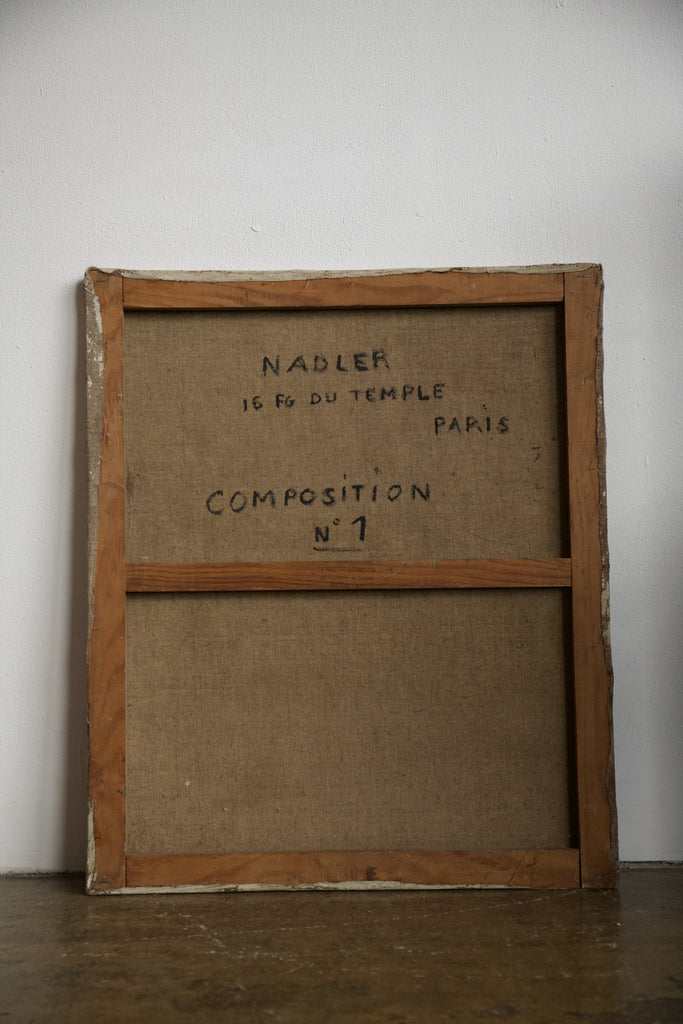 NADLER
16 FG DU TEMPLE
PARIS
COMPOSITION
N° 1